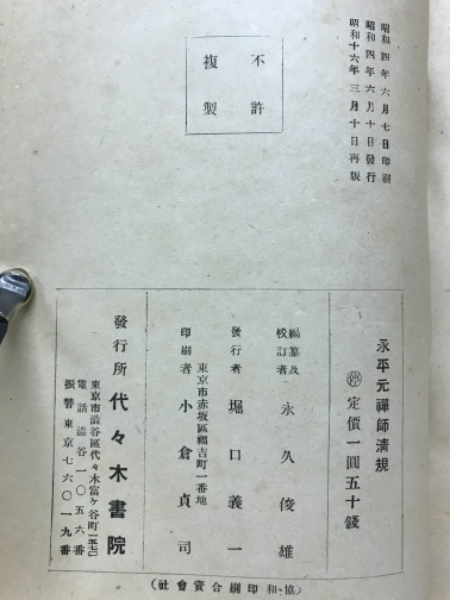 昭和四年六月七日印刷
昭和四年六月十日發行
昭和十六年三月十日再版
不許
複製
永平元禪師淸規
㊡定價一圓五十錢
編纂及校訂者 永久俊雄
發行者 堀口義一
東京市赤坂區福吉町一番地
印刷者 小倉貞司
發行所 代々木書院
東京市澁谷區代々木富ヶ谷町一五七一
電話澁谷一〇五六番
振替東京七六〇一九番
(協和印刷合資會社)